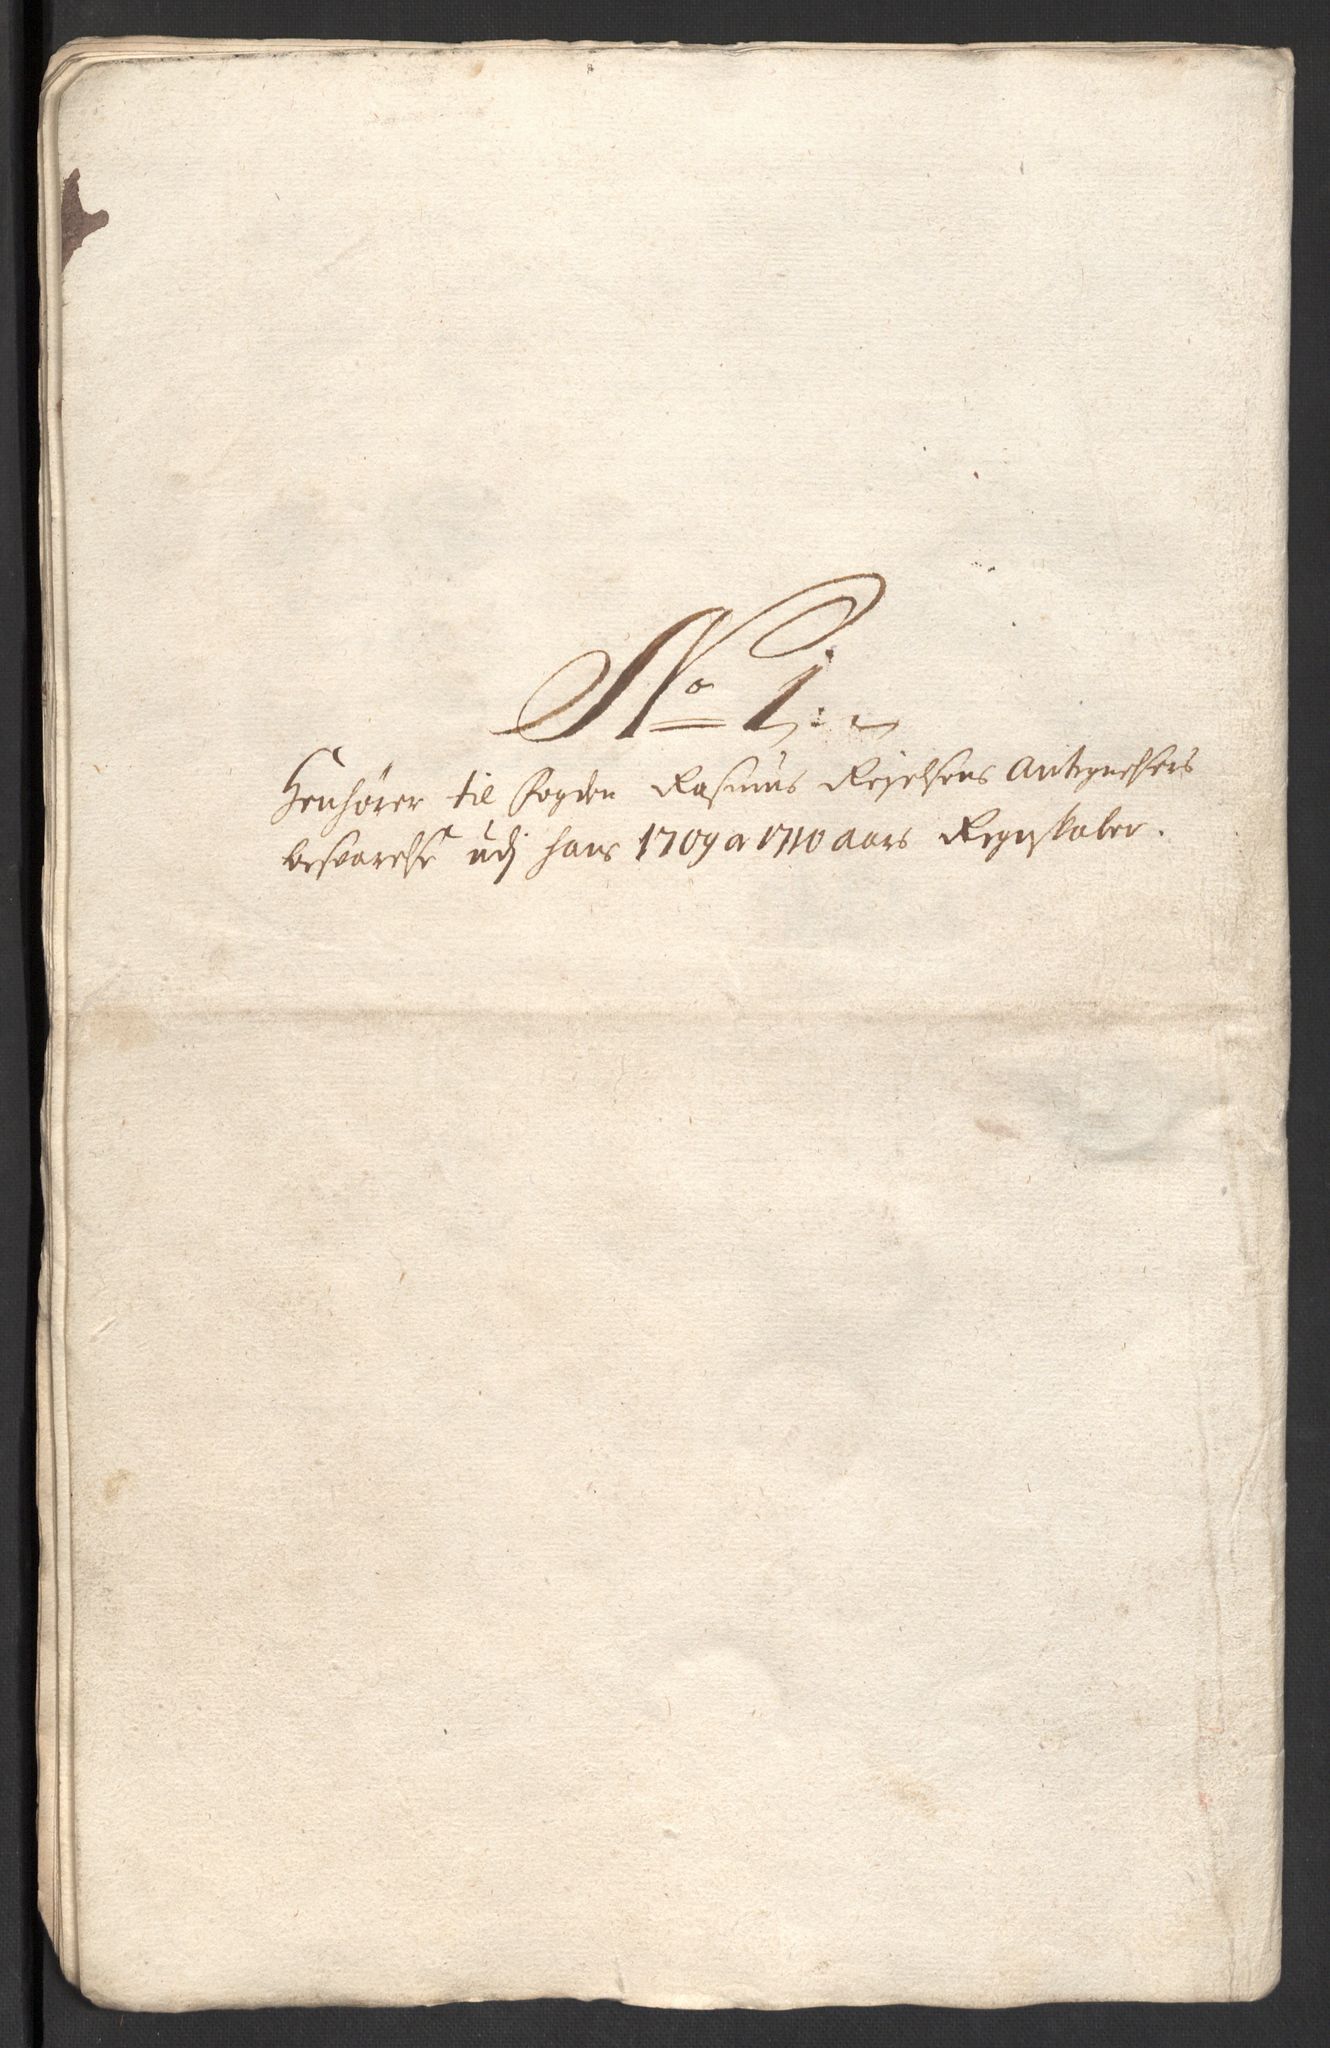 No 1:
Henhører til Fogden Rasmus Rejelsens Antegnelsers
besvarelse udj hans 1709 a 1710 aars Regnskaber.